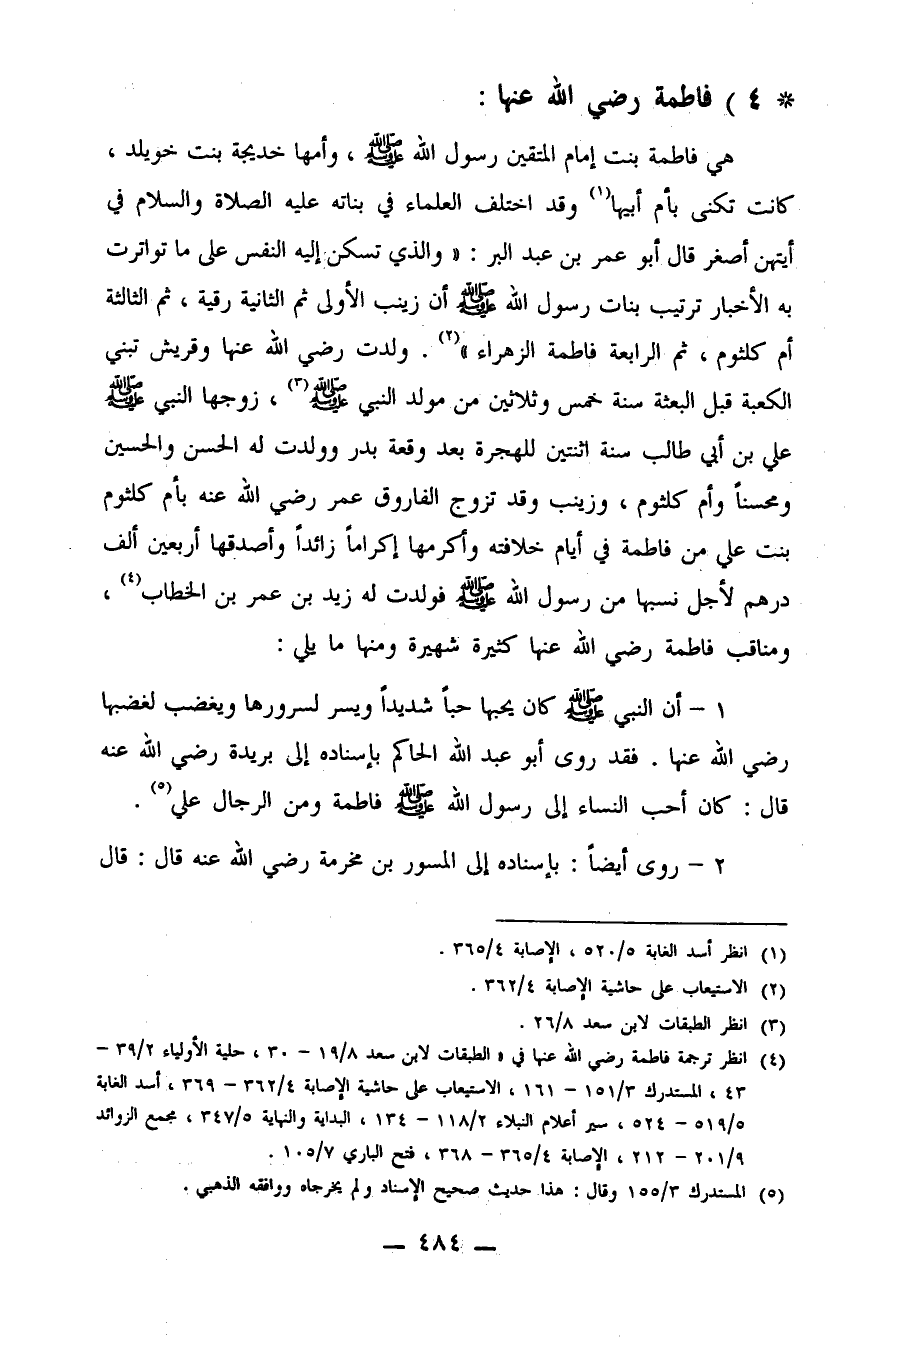 * ٤ ) فاطمة رضي الله عنها :
هي فاطمة بنت إمام المتقين رسول الله ﷺ ، وأمها خديجة بنت خويلد ،
كانت تكنى بأم أبيها(١) وقد اختلف العلماء في بناته عليه الصلاة والسلام في
أيتهن أصغر قال أبو عمر بن عبد البر : « والذي تسكن إليه النفس على ما تواترت
به الأخبار ترتيب بنات رسول الله ﷺ أن زينب الأولى ثم الثانية رقية ، ثم الثالثة
أم كلثوم ، ثم الرابعة فاطمة الزهراء »(٢) . ولدت رضي الله عنها وقريش تبني
الكعبة قبل البعثة سنة خمس وثلاثين من مولد النبي ﷺ(٣) ، زوجها النبي ﷺ
علي بن أبي طالب سنة اثنتين للهجرة بعد وقعة بدر وولدت له الحسن والحسين
ومحسناً وأم كلثوم ، وزينب وقد تزوج الفاروق عمر رضي الله عنه بأم كلثوم
بنت علي من فاطمة في أيام خلافته وأكرمها إكراماً زائداً وأصدقها أربعين ألف
درهم لأجل نسبها من رسول الله ﷺ فولدت له زيد بن عمر بن الخطاب(٤) ،
ومناقب فاطمة رضي الله عنها كثيرة شهيرة ومنها ما يلي :
١ - أن النبي ﷺ كان يحبها حباً شديداً ويسر لسرورها ويغضب لغضبها
رضي الله عنها . فقد روى أبو عبد الله الحاكم بإسناده إلى بريدة رضي الله عنه
قال : كان أحب النساء إلى رسول الله ﷺ فاطمة ومن الرجال علي(٥) .
٢ - روى أيضاً : بإسناده إلى المسور بن مخرمة رضي الله عنه قال : قال
(١) انظر أسد الغابة ٥٢٠/٥ ، الإصابة ٣٦٥/٤ .
(٢) الاستيعاب على حاشية الإصابة ٣٦٢/٤ .
(٣) انظر الطبقات لابن سعد ٢٦/٨ .
(٤) انظر ترجمة فاطمة رضي الله عنها في « الطبقات لابن سعد ١٩/٨ - ٣٠ ، حلية الأولياء ٣٩/٢ -
٤٣ ، المستدرك ١٥١/٣ - ١٦١ ، الاستيعاب على حاشية الإصابة ٣٦٢/٤ - ٣٦٩ ، أسد الغابة
٥١٩/٥ - ٥٢٤ ، سير أعلام النبلاء ١١٨/٢ - ١٣٤ ، البداية والنهاية ٣٤٧/٥ ، مجمع الزوائد
٢٠١/٩ - ٢١٢ ، الإصابة ٣٦٥/٤ - ٣٦٨ ، فتح الباري ١٠٥/٧ .
(٥) المستدرك ١٥٥/٣ وقال : هذا حديث صحيح الإسناد ولم يخرجاه ووافقه الذهبي .
— ٤٨٤ —